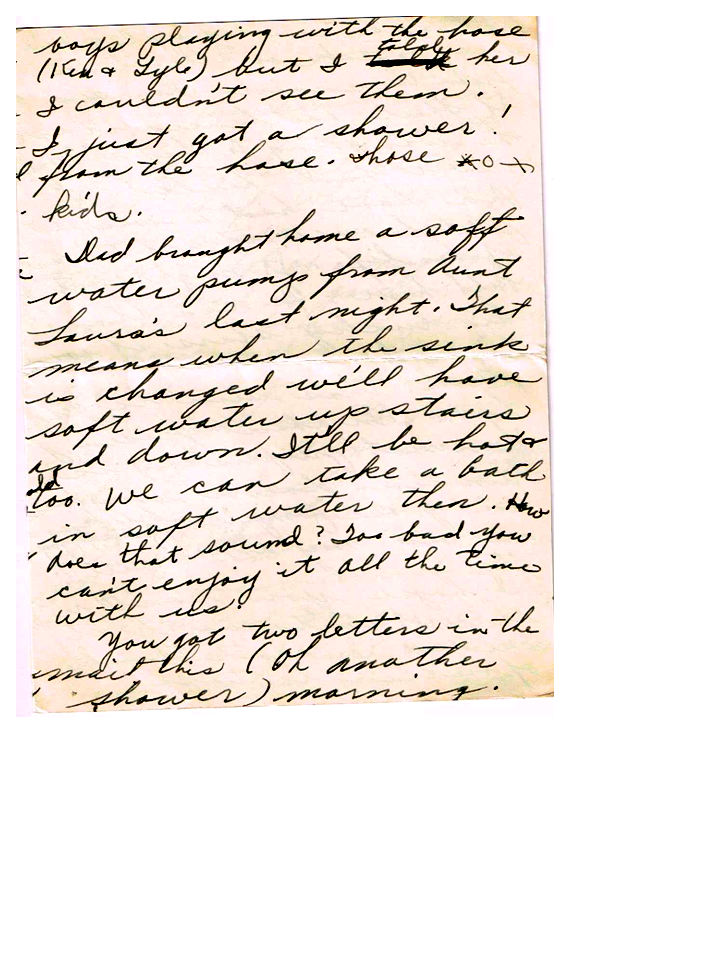 boys playing with the hose
(Ken & Lyle) but I told her
I couldn't see them.
I just got a shower!
from the hose. Those *o-x
kids.
Dad brought home a soft
water pump from Aunt
Laura's last night. That
means when the sink
is changed we'll have
soft water up stairs
and down. It'll be hot &
cold
too. We can take a bath
in soft water then. How
does that sound? Too bad you
can't enjoy it all the time
with us.
You got two letters in the
mail this (Oh another
shower) morning.